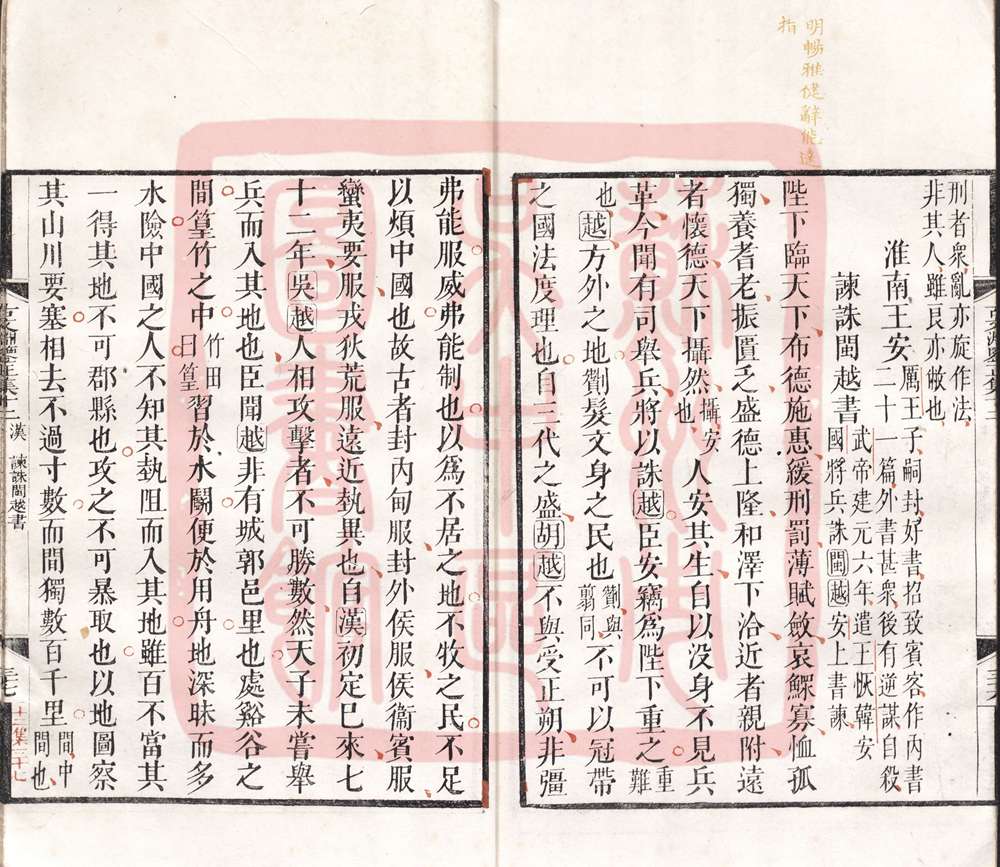 明暢雅健辭能達
指
刑者衆亂亦旋作法
非其人雖良亦敝也
淮南王安厲王子嗣封好書招致賓客作內書
二十一篇外書甚衆後有逆謀自殺
諫誅閩越書武帝建元六年遣王恢韓安
國將兵誅閩越安上書諫
陛下臨天下布德施惠緩刑罰薄賦斂哀鰥寡恤孤
獨養耆老振匱乏盛德上隆和澤下洽近者親附遠
者懷德天下攝然攝安也人安其生自以沒身不見兵
革今聞有司舉兵將以誅越臣安竊爲陛下重之重難
也越方外之地劗髮文身之民也劗與翦同不可以冠帶
之國法度理也自三代之盛胡越不與受正朔非彊
弗能服威弗能制也以爲不居之地不牧之民不足
以煩中國也故古者封內甸服封外侯服侯衞賓服
蠻夷要服戎狄荒服遠近埶異也自漢初定已來七
十二年吳越人相攻擊者不可勝數然天子未嘗舉
兵而入其地也臣聞越非有城郭邑里也處谿谷之
間篁竹之中竹田曰篁習於水鬭便於用舟地深昧而多
水險中國之人不知其埶阻而入其地雖百不當其
一得其地不可郡縣也攻之不可暴取也以地圖察
其山川要塞相去不過寸數而間獨數百千里間中間也
漢 諫誅閩越書
三七
十二集三十七